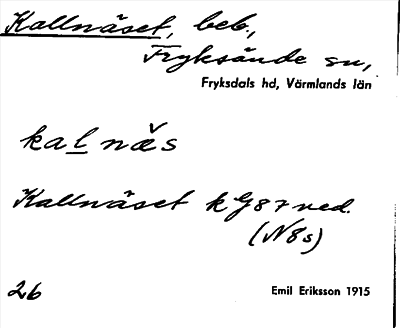 Kallnäset, beb.,
Fryksände sn,
Fryksdals hd, Värmlands län
kalnæ̌s
Kallnäset k G87 ned.
(N8s)
26
Emil Eriksson 1915